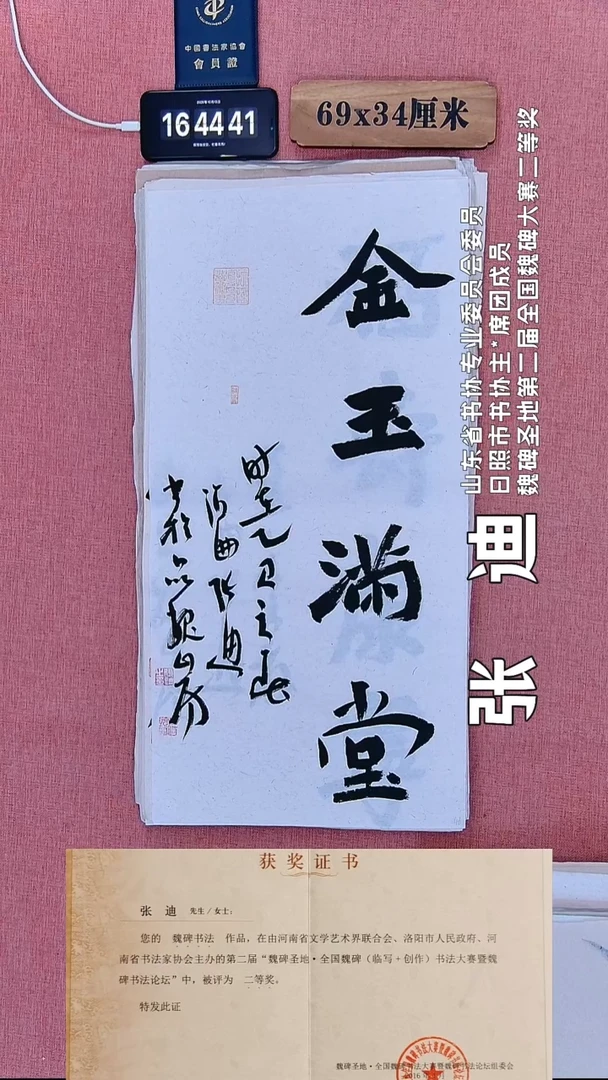 中國書法家協會
會員證
16 44 41
69x34厘米
山东省书协专业委员会委员
日照市书协主*席团成员
魏碑圣地第二届全国魏碑大赛二等奖
张 迪
金玉满堂
时在乙巳之春
张迪
魏山房
获奖证书
张 迪 先生/女士：
您的 魏碑书法 作品，在由河南省文学艺术界联合会、洛阳市人民政府、河
南省书法家协会主办的第二届“魏碑圣地·全国魏碑（临写+创作）书法大赛暨魏
碑书法论坛”中，被评为 二等奖。
特发此证
魏碑圣地·全国魏碑书法大赛暨魏碑书法论坛组委会
2016